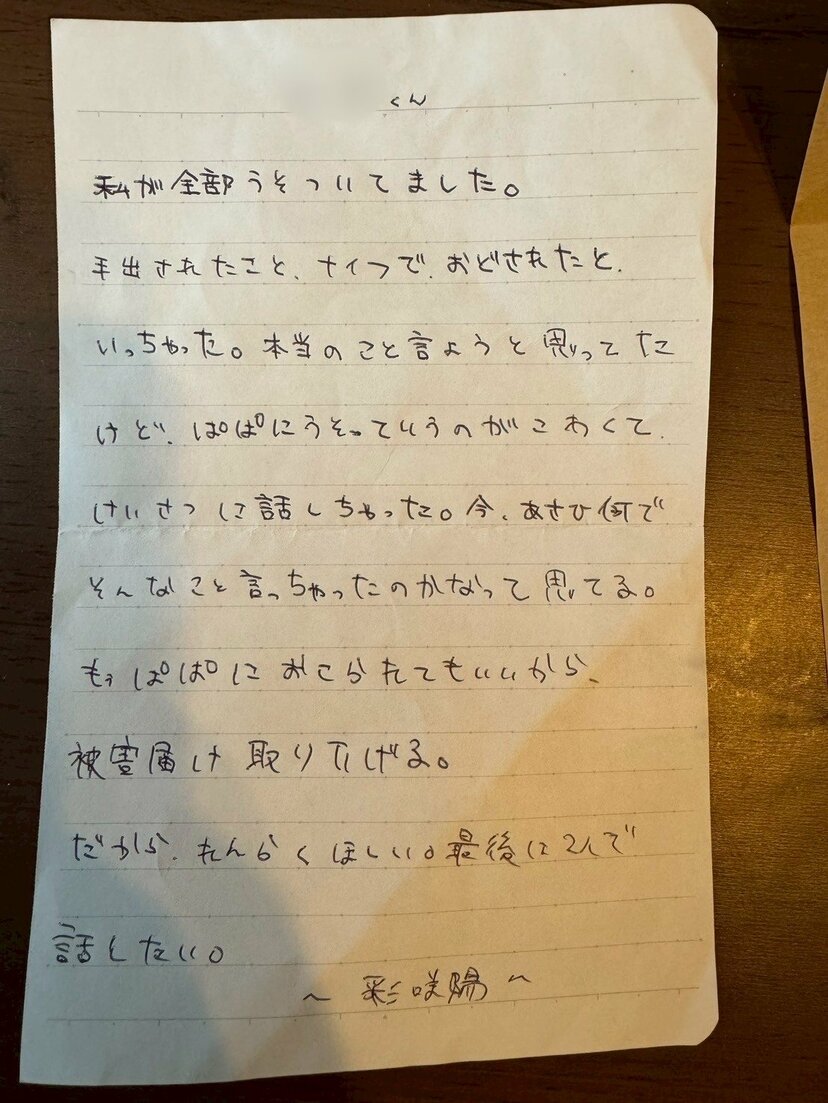 くん
私が全部うそついてました。
手出されたこと、ナイフで、おどされたと、
いっちゃった。本当のこと言ようと思ってた
けど、ぱぱにうそっていうのがこわくて、
けいさつに話しちゃった。今、あさひ何で
そんなこと言っちゃったのかなって思てる。
もぅぱぱにおこられてもいいから、
被害届け取り下げる。
だから、れんらくほしい。最後に2人で
話したい。
~ 彩咲陽 ~